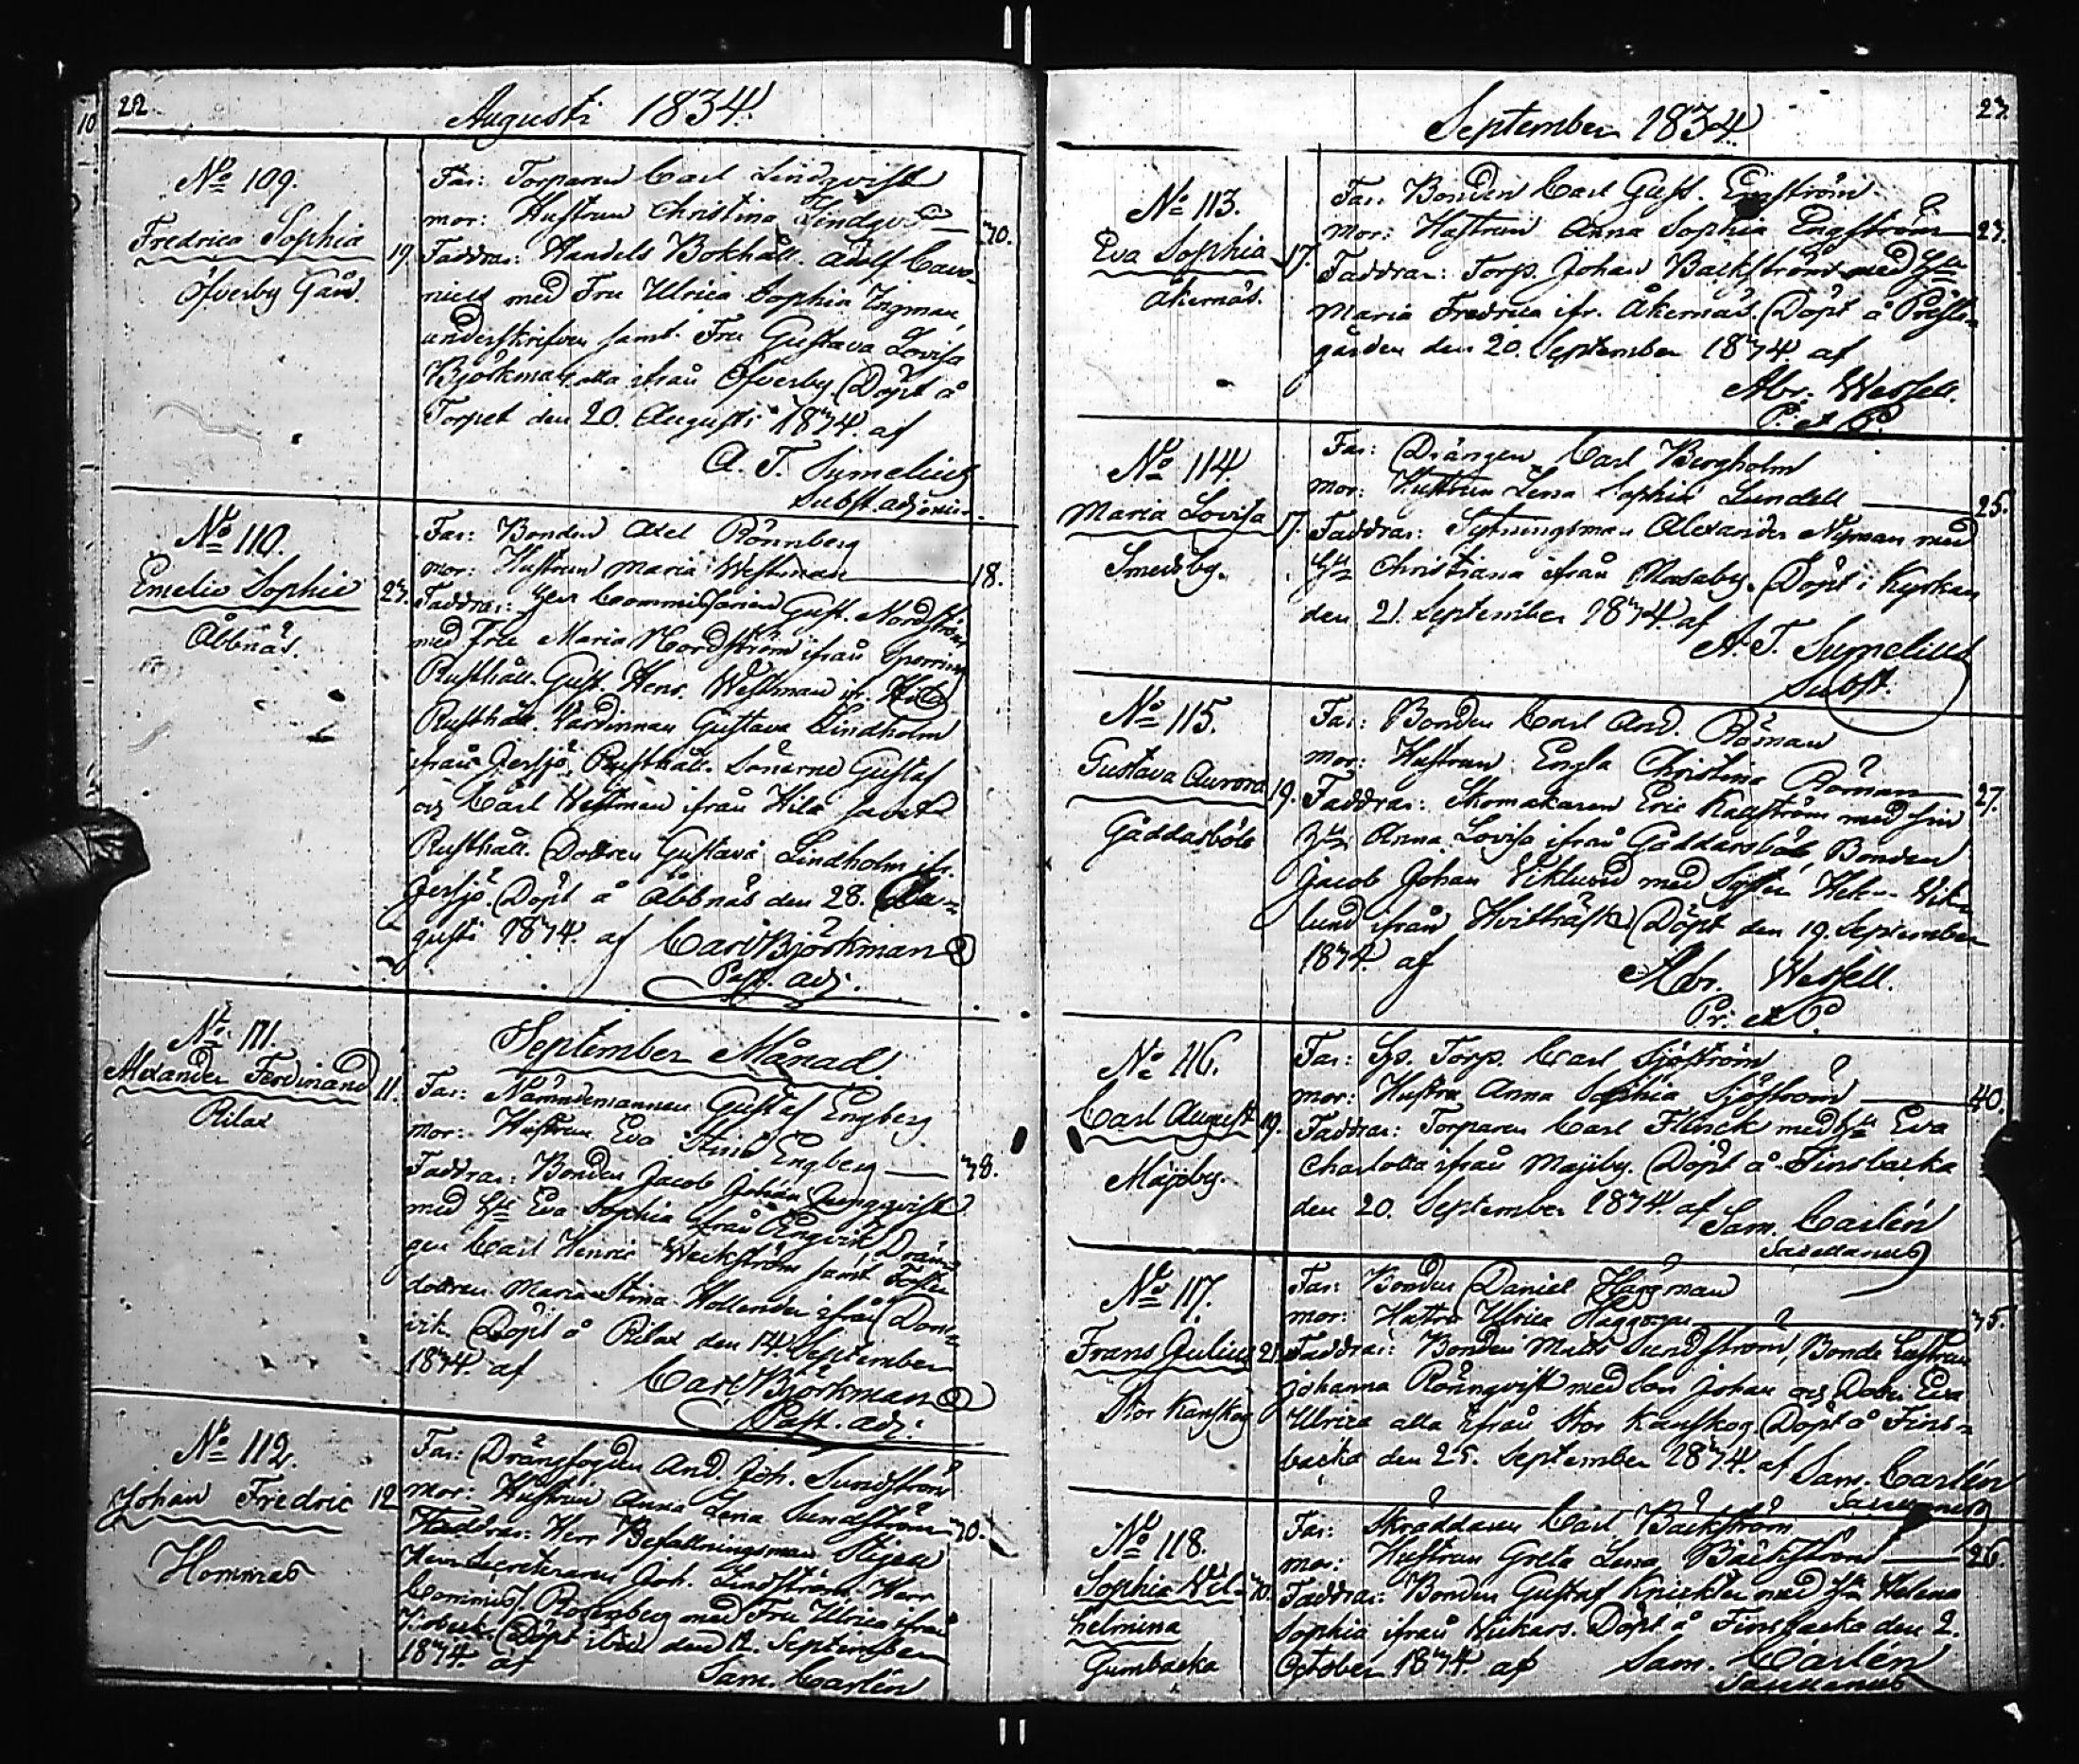 22
Augusti 1834.
No 109.
Fredrica Sophia
Öfverby Gård.
19.
Far: Torparen Carl Lindqvist
mor: Hustrun Christina Lindqvist
30.
Faddrar: Handels Bokhåll. Adolf
med Fru Ulrica Sophia Ingman,
underskrifven samt Fru Gustava Lovisa
Björkman alla ifrån Öfverby. Döpt å
Torpet den 20. Augusti 1834. af
A. T. Sumelius
Subst. adjunct.
No 110.
Emelie Sophie
Åbbnäs.
23.
Far: Bonden Axel Rönnberg
mor: Hustrun Maria Westman
18.
Faddrar: Herr Commissarien Gust. Nordström
med Fru Maria Nordström ifrån
Rusthåll. Gust. Henr. Westman ifr. Hila
Rusthåll. Värdinnan Gustava Lindholm
ifrån Jersjö, Rusthåll. Sönerne Gustaf
och Carl Westman ifrån Hila samt
Rusthåll. Dottren Gustava Lindholm ifr.
Jersjö. Döpt å Åbbnäs den 28. Au=
gusti 1834. af Carl Björkman
Past. adj.
No 111.
Alexander Ferdinand
Rilax
11.
September Månad
Far: Nämndemannen Gustaf Engberg
mor: Hustrun Eva Stina Engberg
38.
Faddrar: Bonden Jacob Johan Ljungqvist
med Hu Eva Sophia ifrån Engvik, Drän=
gen Carl Henric Weckström samt
dottren Maria Stina Hollender ifrån Dons=
vik. Döpt å Rilax den 14 September
1834. af Carl Björkman
Past. adj.
No 112.
Johan Fredric
Hommas
12
Far: Drängfogden And. Joh. Sundström
mor: Hustrun Anna Lena Sundström
30.
Faddrar: Herr Befallningsman
Herr Secreteraren Joh. Lindström Herr
Commiss. Rosenberg med Fru Ulrica ifrån
Döpt ibid. den 12. September
1834. af
Sam. Carlén
23.
September 1834.
No 113.
Eva Sophia
Åkernäs.
17.
Far: Bonden Carl Gust. Engström
mor: Hustrun Anna Sophia Engström
23.
Faddrar: Torp. Johan Backström med Hu
Maria Fredrica ifr. Åkernäs. Döpt å Prest=
gården den 20. September 1834. af
Abr. Wessell.
P. et P.
No 114.
Maria Lovisa
Smedsby.
17.
Far: Drängen Carl Bergholm
mor: Hustrun Lena Sophia Lundell
25.
Faddrar: Sytningsman Alexander Nyman med
Hu Christiana ifrån Masaby. Döpt i Kyrkan
den 21. September 1834. af
A. T. Sumelius
Subst.
No 115.
Gustava Aurora
Gäddarböle
19.
Far: Bonden Carl And. Röman
mor: Hustrun Engla Christina Röman
27.
Faddrar: Skomakaren Eric Kaffström med sin
Hu Anna Lovisa ifrån Gäddarsböle, Bonden
Jacob Johan Viklund med Syster Hel. Vik=
lund ifrån Hvitträsk. Döpt den 19. September
1834. af
Abr. Wessell.
Pr. et P.
No 116.
Carl August
Mäjsby.
19.
Far: Sjö. Torp. Carl Sjöström
mor: Hustru Anna Sophia Sjöström
40.
Faddrar: Torparen Carl Flinck med Hu Eva
Charlotta ifrån Mäjsby. Döpt å Finsbacka
den 20. September 1834 af Sam. Carlén
Sacellanus
No 117.
Frans Julius
Stor Kanskog
21.
Far: Bonden Daniel Häggman
mor: Hustru Ulrica Häggman
35.
Faddrar: Bonden Matts Sundström, Bonde Enkan
Johanna Rönnqvist med Son Johan och Dotter Eva
Ulrica alla ifrån Stor Kanskog. Döpt å Fins=
backa den 25. September 1834. af Sam. Carlén
Sacellanus
No 118.
Sophia Wil=
helmina
Gumbacka
30.
Far: Skräddaren Carl Backström
mor: Hustrun Greta Lena Bäckström
26.
Faddrar: Bonden Gustaf Knickter med Hu Helena
Sophia ifrån Wikars. Döpt å Finsbacka den 2.
October 1834. af Sam. Carlén
Sacellanus